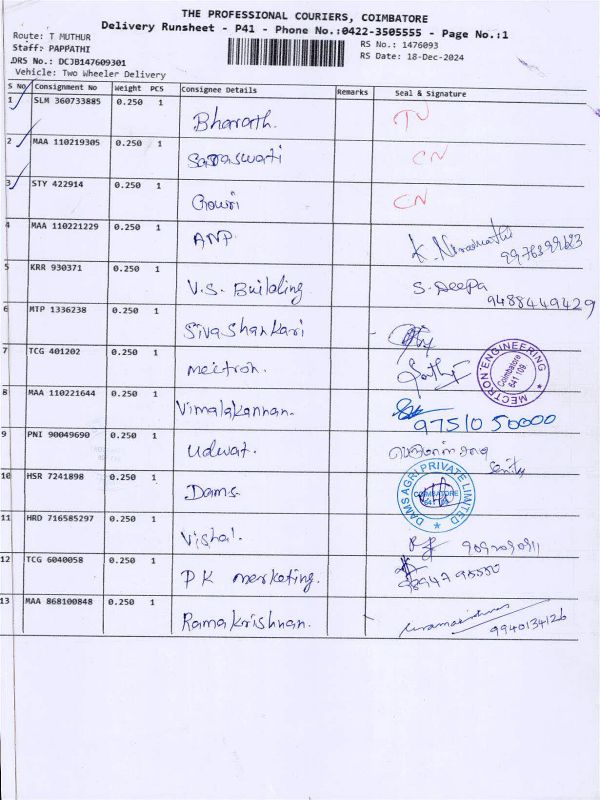 THE PROFESSIONAL COURIERS, COIMBATORE
Delivery Runsheet - P41 - Phone No.:0422-3505555 - Page No.:1
Route: T MUTHUR
RS No.: 1476093
Staff: PAPPATHI
RS Date: 18-Dec-2024
DRS No.: DCJB147609301
Vehicle: Two Wheeler Delivery
S No Consignment No Weight PCS Consignee Details Remarks Seal & Signature
1 SLM 360733885 0.250 1 Bharath. TN
2 MAA 110219305 0.250 1 Saraswati CN
3 STY 422914 0.250 1 Gowri CN
4 MAA 110221229 0.250 1 ANP
5 KRR 930371 0.250 1 V.S. Building S. Deepa
9488449429
6 MTP 1336238 0.250 1 Sivashankari
7 TCG 401202 0.250 1 mectron.
MECTRON ENGINEERING
Coimbatore
641 109
8 MAA 110221644 0.250 1 Vimalakannan.
97510 50000
9 PNI 90049690 0.250 1 Udwat.
10 HSR 7241898 0.250 1 Dams.
DAMS AGRI PRIVATE LIMITED
COIMBATORE
11 HRD 716585297 0.250 1 Vishal.
12 TCG 6040058 0.250 1 PK marketing.
13 MAA 868100848 0.250 1 Ramakrishnan.
9940134126